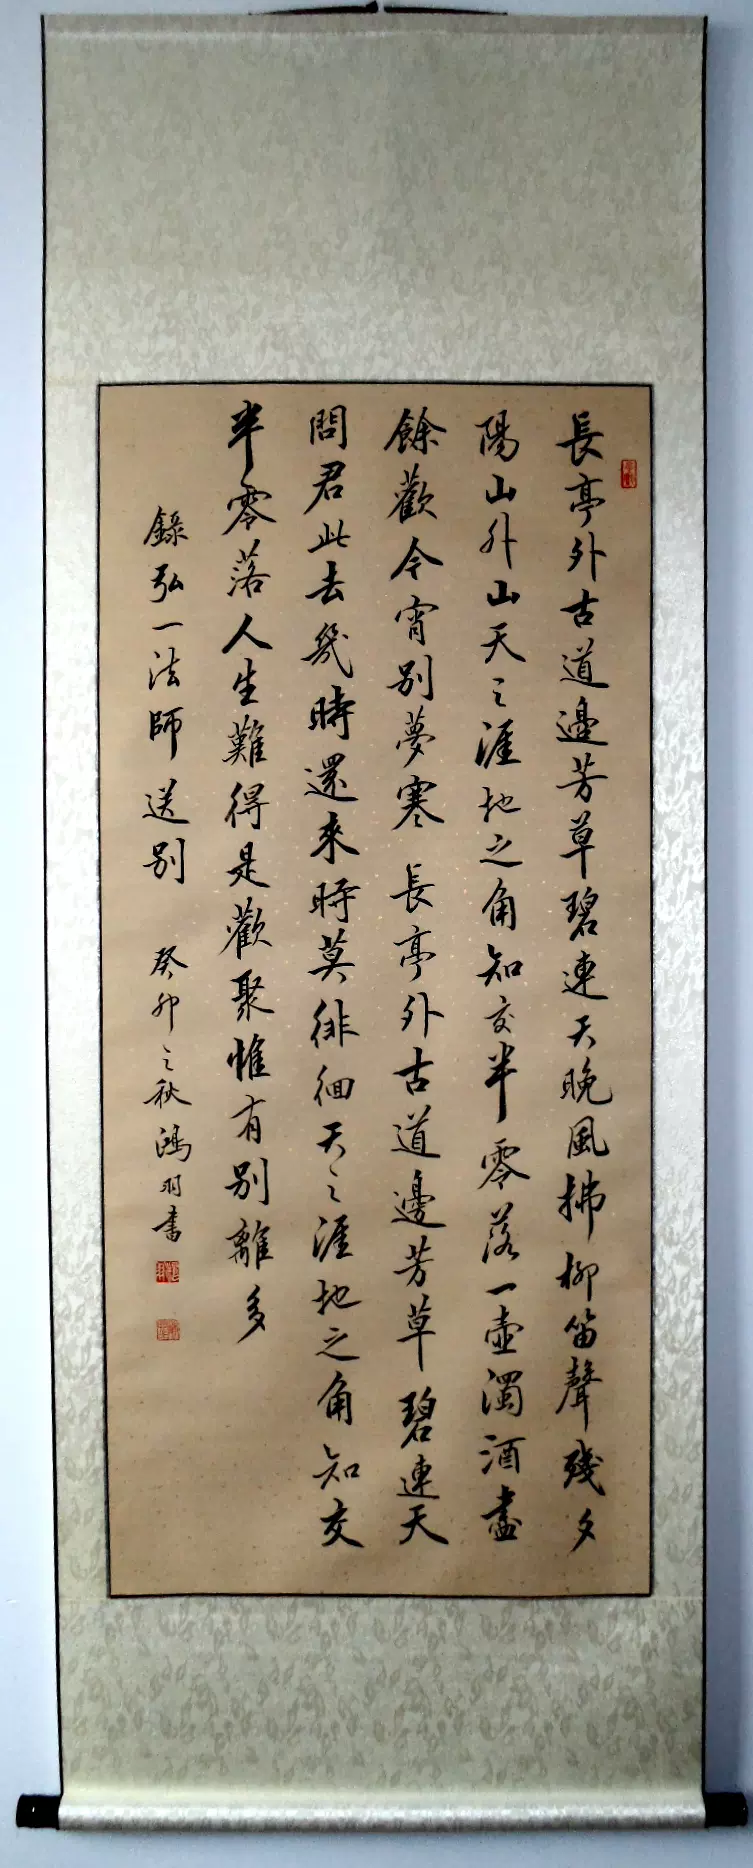 長亭外古道邊芳草碧連天晚風拂柳笛聲殘夕
陽山外山天之涯地之角知交半零落一壺濁酒盡
餘歡今宵別夢寒 長亭外古道邊芳草碧連天
問君此去幾時還來時莫徘徊天之涯地之角知交
半零落人生難得是歡聚惟有別離多
錄弘一法師送別 癸卯之秋鴻羽書